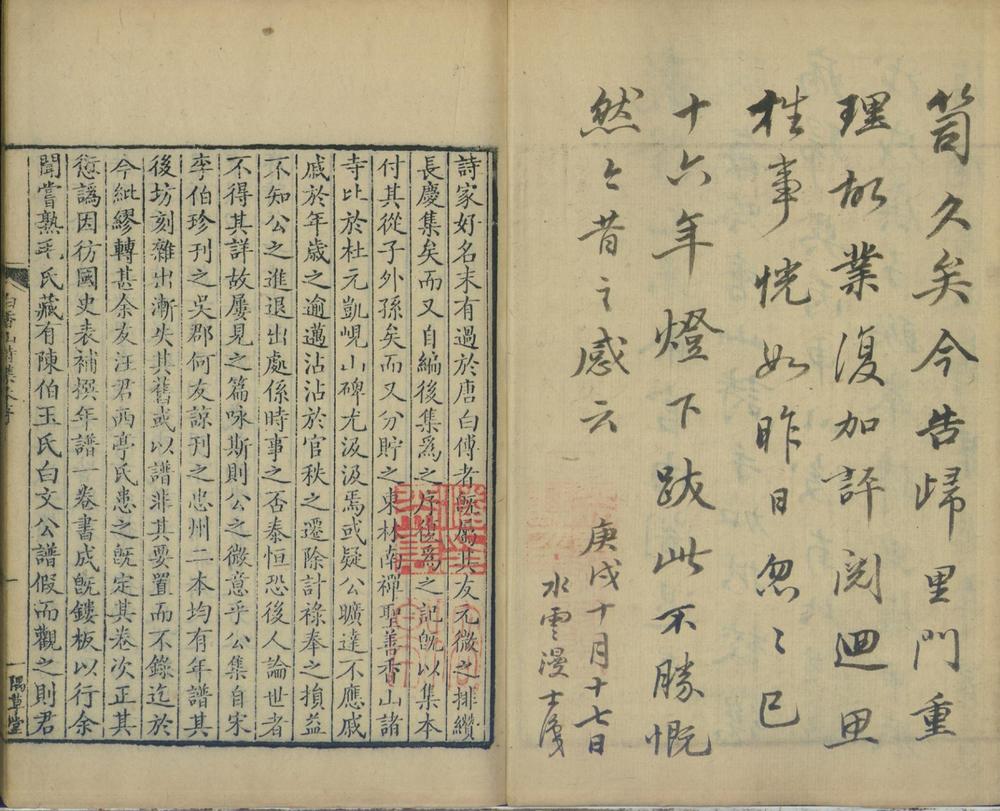 笥久矣今告歸里門重
理故業復加評閱迴思
往事恍如昨日忽〻已
十六年燈下跋此不勝慨
然〻昔之感云
庚戌十月十七日
水雲漫士識
詩家好名未有過於唐白傅者旣屬其友元微之排纘
長慶集矣而又自編後集爲之序復爲之記旣以集本
付其從子外孫矣而又分貯之東林南禪聖善香山諸
寺比於杜元凱峴山碑尤汲汲焉或疑公曠達不應戚
戚於年歲之逾邁沾沾於官秩之遷除計祿奉之損益
不知公之進退出處係時事之否泰恒恐後人論世者
不得其詳故屢見之篇咏斯則公之微意乎公集自宋
李伯珍刊之吳郡何友諒刊之忠州二本均有年譜其
後坊刻雜出漸失其舊或以譜非其要置而不錄迄於
今紕繆轉甚余友汪君西亭氏患之旣定其卷次正其
愆譌因彷國史表補撰年譜一卷書成旣鏤板以行余
聞嘗熟毛氏藏有陳伯玉氏白文公譜假而觀之則君
白香山詩集
一
一隅草堂